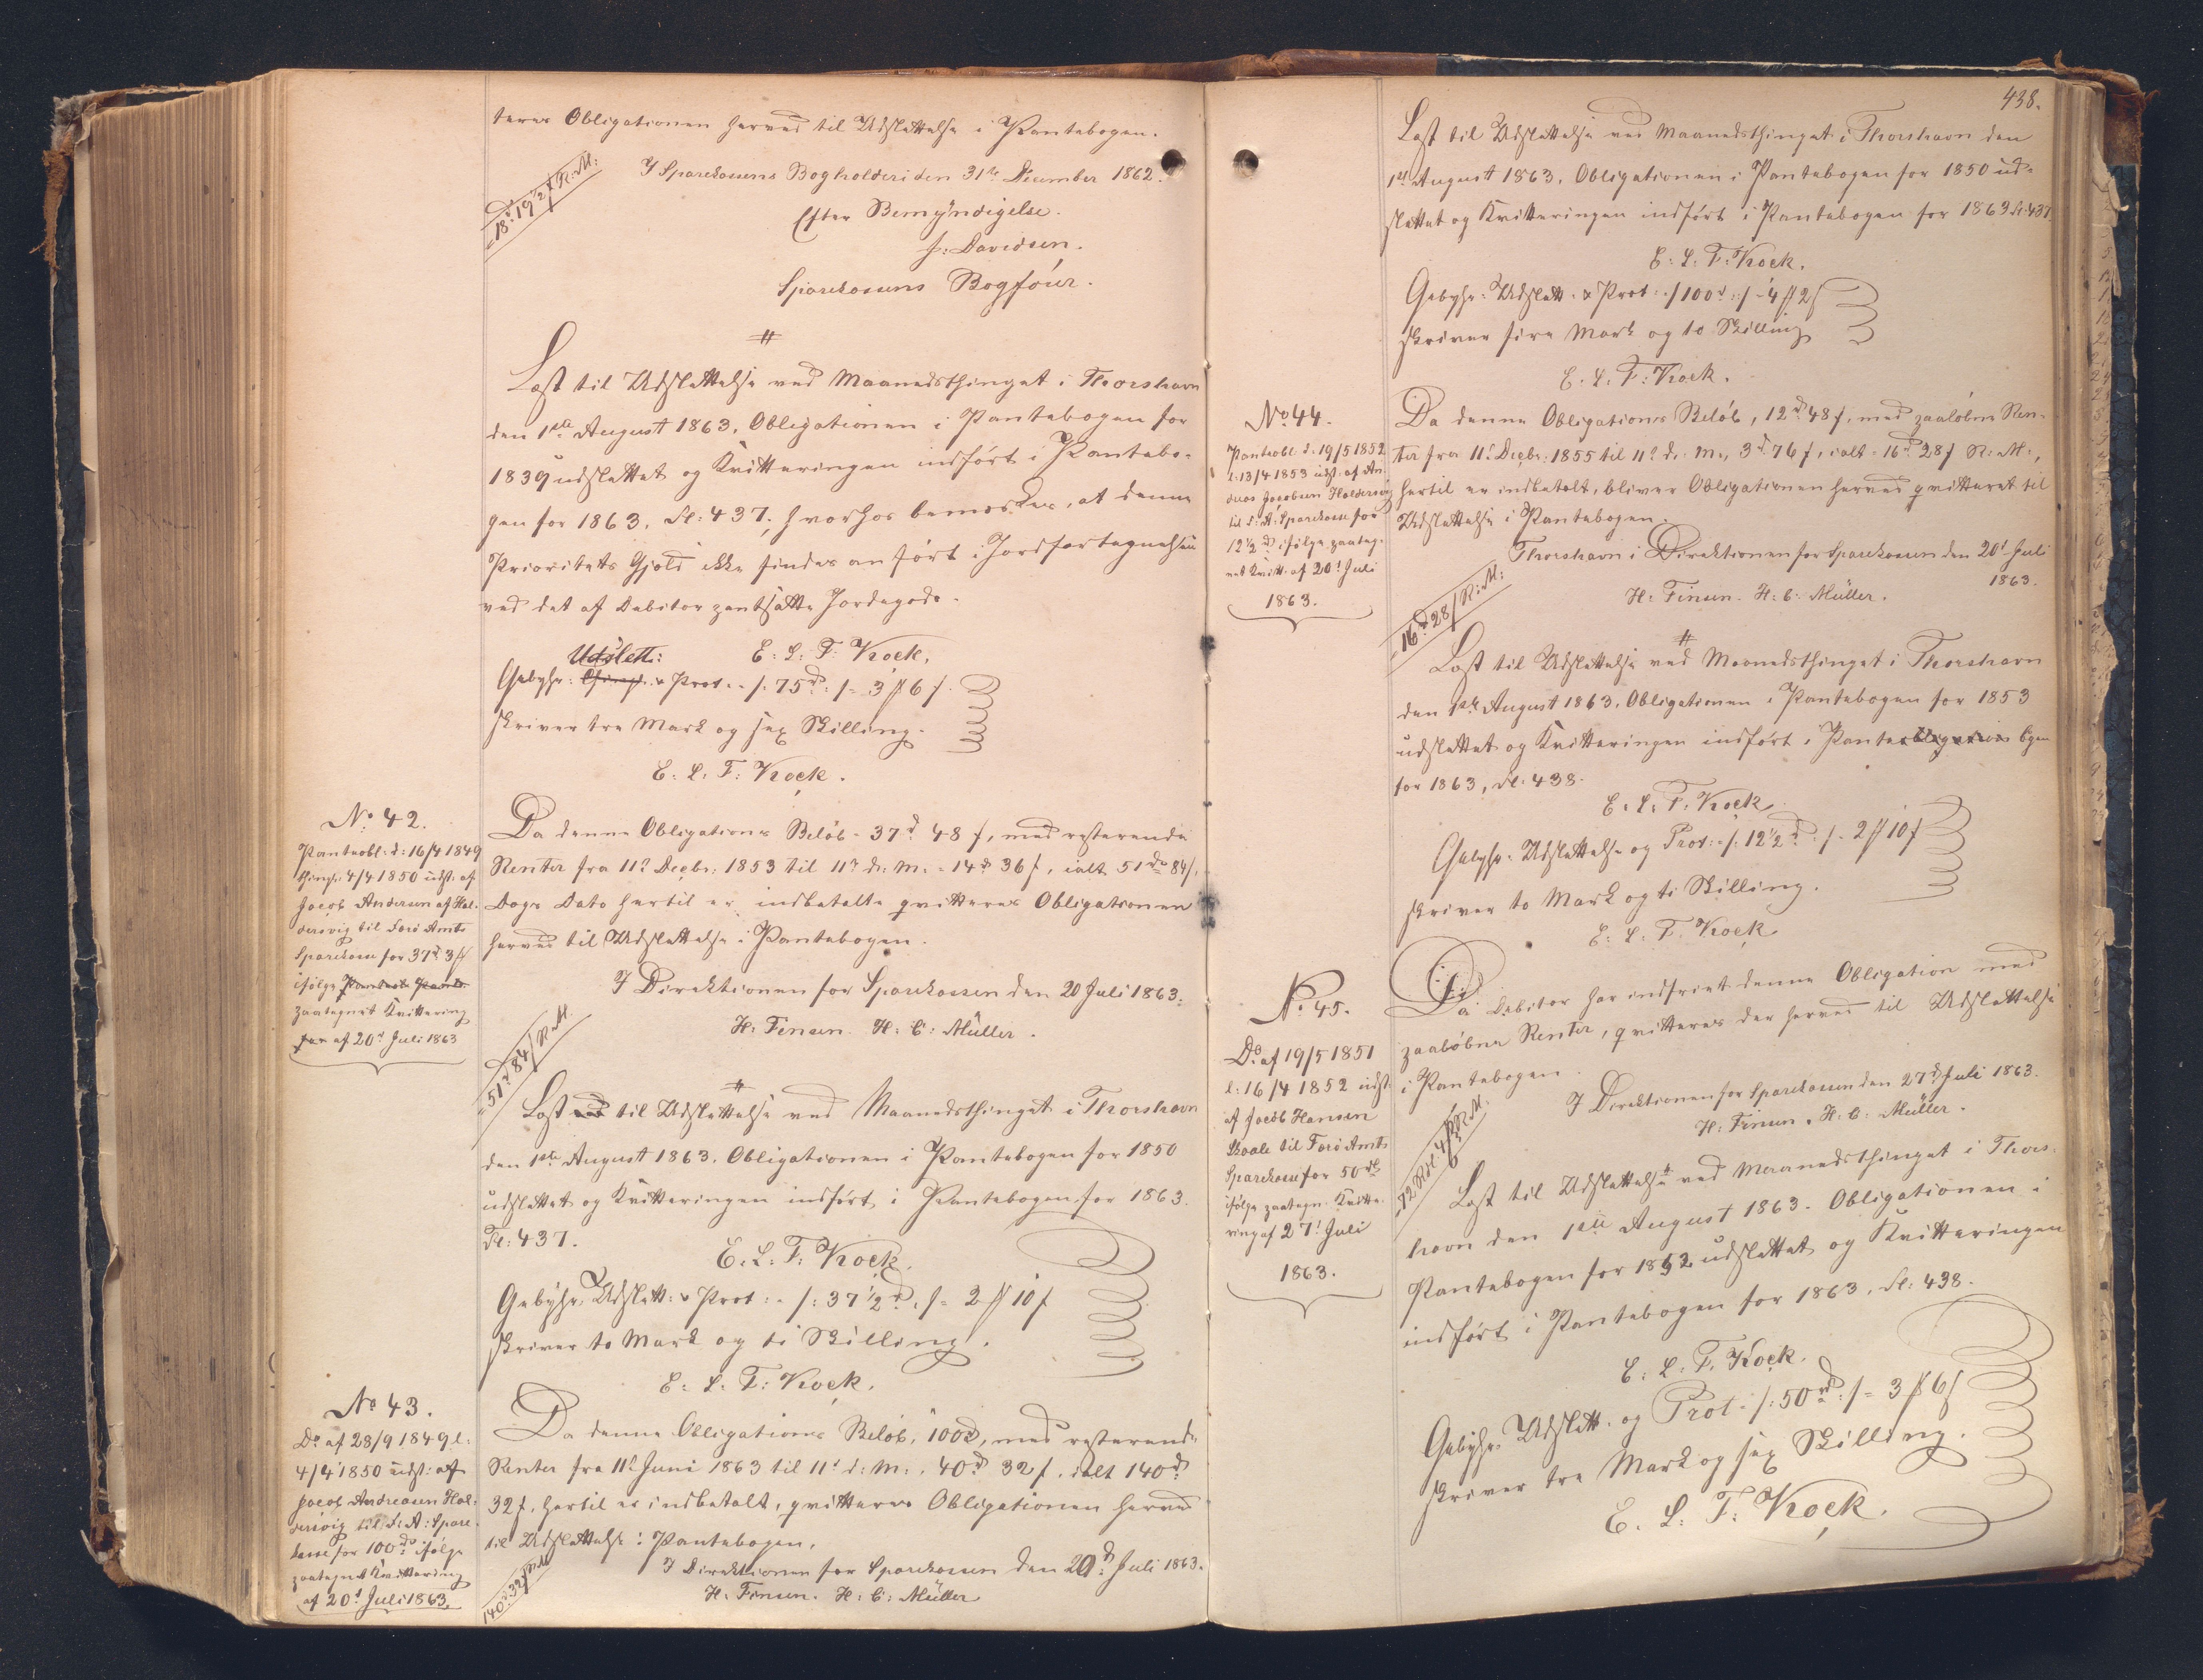 teres Obligationen herved til Udslettelse i Pantebogen.
I Sparekassens Bogholderi den 31te December 1862.
18d 19½ s R: M:
Efter Bemyndigelse.
J: Davidsen.
Sparekassens Bogfører.
#
Læst til Udslettelse ved Maanedsthinget i Thorshavn
den 1ste August 1863. Obligationen i Pantebogen for
1839 udslettet og Kvitteringen indført i Pantebo-
gen for 1863. Fl: 437, hvorhos bemærkes, at denne
Prioritets Gjæld ikke findes anført i Jordfortegnelsen
ved det af Debitor pantsatte Jordegods.
E: L: F: Kock.
Udslett:
Gebyhr: Thingl: & Prot: /: 75d :/ = 3 # 6 s.
skriver tre Mark og sex Skilling.
E: L: F: Kock.
No 42.
Panteobl: d: 16/4 1849
thingl: 4/4 1850 udst: af
Jacob Andersen af Hal-
dersvig til Færø Amts
Sparekasse for 37d 3 #
ifølge
paategnet Kvittering
for af 20d Juli 1863
Da denne Obligations Beløb = 37d 48 s, med resterende
Renter fra 11te Decbr: 1853 til 11te d: M: = 14d 36 s, ialt 51d 84 s.
Dags Dato hertil er indbetalte qvitteres Obligationen
herved til Udslettelse i Pantebogen.
I Direktionen for Sparekassen den 20 Juli 1863.
H: Finsen. H: C: Müller.
51d 84 s R: M.
#
Læst ved til Udslettelse ved Maanedsthinget i Thorshavn
den 1ste August 1863. Obligationen i Pantebogen for 1850
udslettet og Kvitteringen indført i Pantebogen for 1863.
Fl: 437.
E: L: F: Kock.
Gebyhr: Udslett: & Prot: /: 37½d :/ = 2 # 10 s
skriver to Mark og ti Skilling.
E: L: F: Kock.
No 43.
Do af 28/9 1849 l:
4/4 1850 udst: af
Jacob Andreasen Hal-
dersvig til F: A: Spare-
kasse for 100d ifølge
paategnet Kvittering
af 20d Juli 1863.
Da denne Obligations Beløb, 100d, med resterende
Renter fra 11te Juni 1863 til 11te d: M:, 40d 32 s, ialt 140d
32 s, hertil er indbetalt, qvitteres Obligationen herved
til Udslettelse i Pantebogen.
I Direktionen for Sparekassen den 20d Juli 1863.
H: Finsen. H: C: Müller
140d 32 s R: M
438.
Læst til Udslettelse ved Maanedsthinget i Thorshavn den
1ste August 1863. Obligationen i Pantebogen for 1850 ud-
slettet og Kvitteringen indført i Pantebogen for 1863 Fl: 437.
E: L: F: Kock.
Gebyhr: Udslett: & Prot: /: 100d :/ = 4 # 2 s
skriver fire Mark og to Skilling
E: L: F: Kock.
No 44.
Panteobl. d: 19/5 1852
l: 13/4 1853 udst: af An-
dreas Jacobsen Haldersvig
til F: A: Sparekasse for
12½d ifølge paateg-
net Kvitt: af 20d Juli
1863.
Da denne Obligations Beløb, 12d 48 s, med paaløbne Ren-
ter fra 11te Decbr: 1855 til 11te d: M:, 3d 76 s, ialt = 16d 28 s R: M:,
hertil er indbetalt, bliver Obligationen herved qvitteret til
Udslettelse i Pantebogen.
Thorshavn i Direktionen for Sparekassen den 20d Juli
1863.
H: Finsen. H: C: Müller.
16d 28 s R: M:
#
Læst til Udslettelse ved Maanedsthinget i Thorshavn
den 1ste August 1863. Obligationen i Pantebogen for 1853
udslettet og Kvitteringen indført i Pantebogen
for 1863, Fl: 438.
E: L: F: Kock.
Gebyhr: Udslettelse og Prot: /: 12½d :/ = 2 # 10 s
skriver to Mark og ti Skilling.
E: L: F: Kock
No 45.
Do af 19/5 1851
l: 16/4 1852 udst:
af Jacob Hansen
Skaale til Færø Amts
Sparekasse for 50d
ifølge paategn: Kvitte-
ring af 27d Juli
1863.
Da Debitor har indfriet denne Obligation med
paaløbne Renter, qvitteres der herved til Udslettelse
i Pantebogen.
I Direktionen for Sparekassen den 27d Juli 1863.
H: Finsen. H: C: Müller.
#
Læst til Udslettelse ved Maanedsthinget i Thors-
havn den 1ste August 1863. Obligationen i
Pantebogen for 1852 udslettet og Kvitteringen
indført i Pantebogen for 1863, Fl: 438.
E: L: F: Kock.
Gebyhr: Udslett: og Prot: /: 50d :/ = 3 # 6 s
skriver tre Mark og sex Skilling.
E: L: F: Kock.